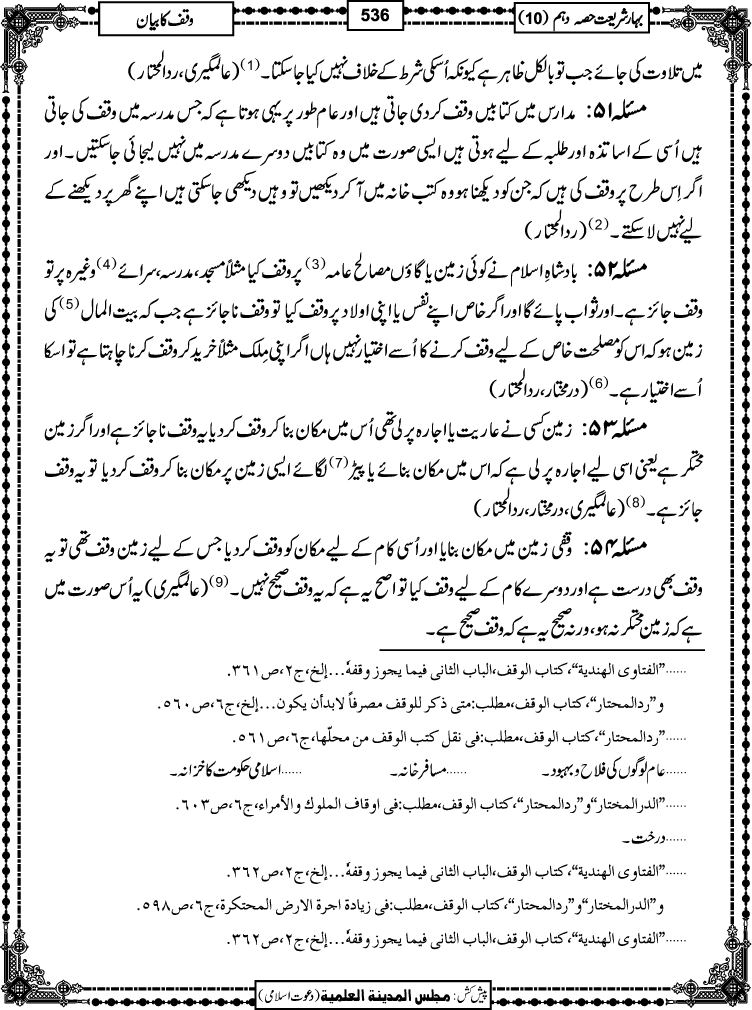 بہارِ شریعت حصہ دہم (10)
536
وقف کا بیان
میں تلاوت کی جائے جب تو بالکل ظاہر ہے کیونکہ اُسکی شرط کے خلاف نہیں کیا جاسکتا۔(1) (عالمگیری، ردالمحتار)
مسئلہ ۵۱: مدارس میں کتابیں وقف کر دی جاتی ہیں اور عام طور پر یہی ہوتا ہے کہ جس مدرسہ میں وقف کی جاتی
ہیں اُسی کے اساتذہ اور طلبہ کے لیے ہوتی ہیں ایسی صورت میں وہ کتابیں دوسرے مدرسہ میں نہیں لیجائی جاسکتیں۔ اور
اگر اِس طرح پر وقف کی ہیں کہ جن کو دیکھنا ہو وہ کتب خانہ میں آ کر دیکھیں تو وہیں دیکھی جاسکتی ہیں اپنے گھر پر دیکھنے کے
لیے نہیں لاسکتے۔(2) (ردالمحتار)
مسئلہ ۵۲: بادشاہِ اسلام نے کوئی زمین یا گاؤں مصالحِ عامہ(3) پر وقف کیا مثلاً مسجد، مدرسہ، سرائے(4) وغیرہ پر تو
وقف جائز ہے۔ اور ثواب پائے گا اور اگر خاص اپنے نفس یا اپنی اولاد پر وقف کیا تو وقف ناجائز ہے جب کہ بیت المال(5) کی
زمین ہو کہ اس کو مصلحت خاص کے لیے وقف کرنے کا اُسے اختیار نہیں ہاں اگر اپنی مِلک مثلاً خرید کر وقف کرنا چاہتا ہے تو اسکا
اُسے اختیار ہے۔(6) (درمختار، ردالمحتار)
مسئلہ ۵۳: زمین کسی نے عاریت یا اجارہ پر لی تھی اُس میں مکان بنا کر وقف کر دیا یہ وقف ناجائز ہے اور اگر زمین
محتکر ہے یعنی اسی لیے اجارہ پر لی ہے کہ اس میں مکان بنائے یا پیڑ(7) لگائے ایسی زمین پر مکان بنا کر وقف کر دیا تو یہ وقف
جائز ہے۔(8) (عالمگیری، درمختار، ردالمحتار)
مسئلہ ۵۴: وقفی زمین میں مکان بنایا اور اُسی کام کے لیے مکان کو وقف کر دیا جس کے لیے زمین وقف تھی تو یہ
وقف بھی درست ہے اور دوسرے کام کے لیے وقف کیا تو اصح یہ ہے کہ یہ وقف صحیح نہیں۔(9) (عالمگیری) یہ اُس صورت میں
ہے کہ زمین محتکر نہ ہو، ورنہ صحیح یہ ہے کہ وقف صحیح ہے۔
......”الفتاوى الهندية“، كتاب الوقف، الباب الثانى فيما يجوز وقفه...إلخ، ج٢، ص٣٦١.
و”ردالمحتار“، كتاب الوقف، مطلب: متى ذكر للوقف مصرفاً لابدأن يكون...إلخ، ج٦، ص٥٦٠.
......”ردالمحتار“، كتاب الوقف، مطلب: فى نقل كتب الوقف من محلّها، ج٦، ص٥٦١.
......عام لوگوں کی فلاح و بہبود۔ ......مسافر خانہ۔ ......اسلامی حکومت کا خزانہ۔
......”الدرالمختار“و”ردالمحتار“، كتاب الوقف، مطلب: فى اوقاف الملوك والأمراء، ج٦، ص٦٠٣.
......درخت۔
......”الفتاوى الهندية“، كتاب الوقف، الباب الثانى فيما يجوز وقفه...إلخ، ج٢، ص٣٦٢.
و”الدرالمختار“و”ردالمحتار“، كتاب الوقف، مطلب: فى زيادة اجرة الارض المحتكرة، ج٦، ص٥٩٨.
......”الفتاوى الهندية“، كتاب الوقف، الباب الثانى فيما يجوز وقفه...إلخ، ج٢، ص٣٦٢.
پیش کش: مجلس المدینة العلمیة (دعوت اسلامی)